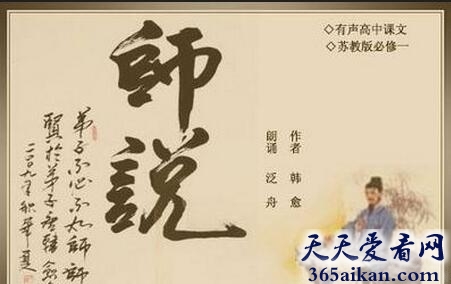 師說
弟子不必不如師師
賢於弟子
二〇〇九年秋
◇有声高中课文
◇苏教版必修一
作者 韩愈
朗诵 泛舟
天天爱看网
365aikan.com